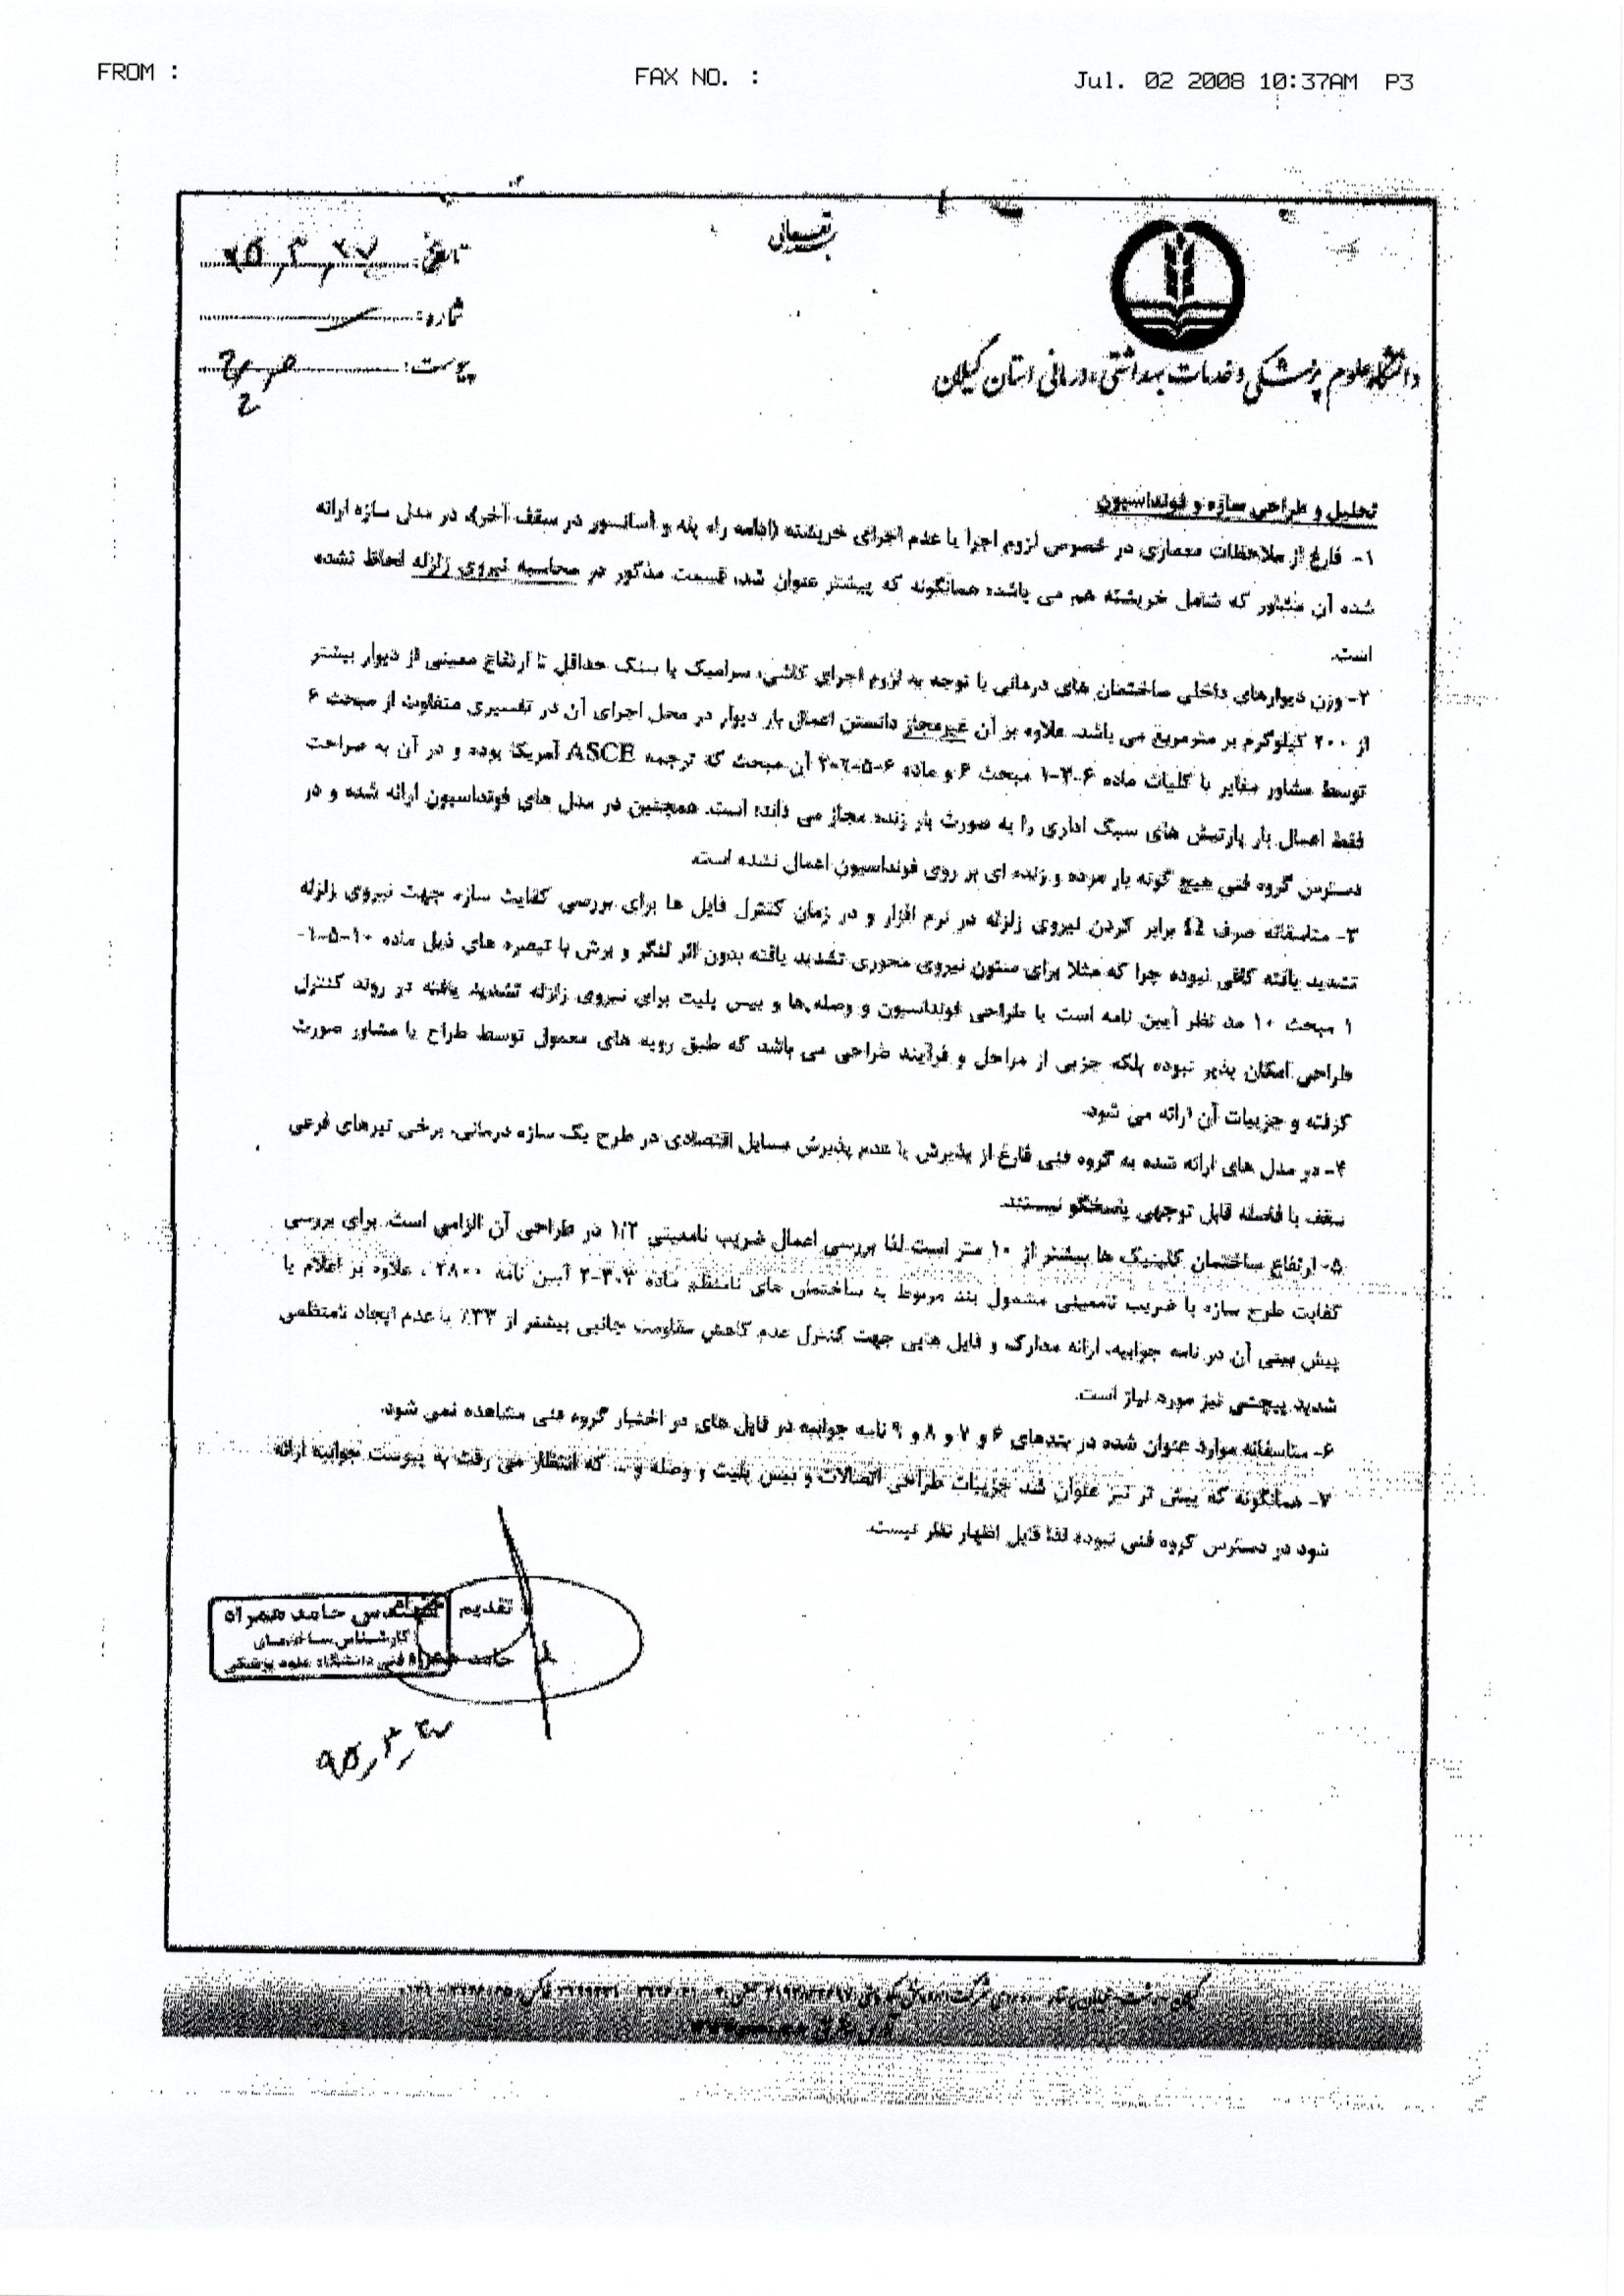 FROM :
FAX NO. :
Jul. 02 2008 10:37AM P3
تاریخ:
شماره:
پیوست:
دانشگاه علوم پزشکی و خدمات بهداشتی، درمانی استان گیلان
تحلیل و طراحی سازه و فونداسیون
۱- فارغ از ملاحظات معماری در خصوص لزوم اجرا یا عدم اجرای خرپشته (ادامه راه پله و آسانسور در سقف آخر)، در مدل سازه ارائه
شده آن مشاور که شامل خرپشته هم می باشد، همانگونه که پیشتر عنوان شد، قسمت مذکور در محاسبه نیروی زلزله لحاظ نشده
است.
۲- وزن دیوارهای داخلی ساختمان های درمانی با توجه به لزوم اجرای کاشی، سرامیک یا سنگ حداقل تا ارتفاع معینی از دیوار بیشتر
از ۲۰۰ کیلوگرم بر مترمربع می باشد. علاوه بر آن غیرمجاز دانستن اعمال بار دیوار در محل اجرای آن در تفسیری متفاوت از مبحث ۶
توسط مشاور مغایر با کلیات ماده ۶-۳-۱ مبحث ۶ و ماده ۶-۵-۲-۲ آن مبحث که ترجمه ASCE آمریکا بوده و در آن به صراحت
فقط اعمال بار پارتیشن های سبک اداری را به صورت بار زنده مجاز می داند، است. همچنین در مدل های فونداسیون ارائه شده و در
دسترس گروه فنی هیچ گونه بار مرده و زنده ای بر روی فونداسیون اعمال نشده است.
۳- متاسفانه صرف Ω برابر کردن نیروی زلزله در نرم افزار و در زمان کنترل فایل ها برای بررسی کفایت سازه جهت نیروی زلزله
تشدید یافته کافی نبوده چرا که مثلا برای ستون نیروی محوری تشدید یافته بدون اثر لنگر و برش با تبصره های ذیل ماده ۱۰-۵-۱-
۱ مبحث ۱۰ مد نظر آیین نامه است یا طراحی فونداسیون و وصله ها و بیس پلیت برای نیروی زلزله تشدید یافته در روند کنترل
طراحی امکان پذیر نبوده بلکه جزیی از مراحل و فرآیند طراحی می باشد که طبق رویه های معمول توسط طراح یا مشاور صورت
گرفته و جزییات آن ارائه می شود.
۴- در مدل های ارائه شده به گروه فنی فارغ از پذیرش یا عدم پذیرش مسایل اقتصادی در طرح یک سازه درمانی، برخی تیرهای فرعی
سقف با فاصله قابل توجهی پاسخگو نیستند.
۵- ارتفاع ساختمان کلینیک ها بیشتر از ۱۰ متر است لذا بررسی اعمال ضریب نامعینی ۱/۲ در طراحی آن الزامی است. برای بررسی
کفایت طرح سازه با ضریب نامعینی مشمول بند مربوط به ساختمان های نامنظم ماده ۳-۳-۲ آیین نامه ۲۸۰۰ ، علاوه بر اعلام یا
پیش بینی آن در نامه جوابیه، ارائه مدارک و فایل هایی جهت کنترل عدم کاهش مقاومت جانبی بیشتر از ۳۳٪ یا عدم ایجاد نامنظمی
شدید پیچشی نیز مورد نیاز است.
۶- متاسفانه موارد عنوان شده در بندهای ۶ و ۷ و ۸ و ۹ نامه جوابیه در فایل های در اختیار گروه فنی مشاهده نمی شود.
۷- همانگونه که پیش تر نیز عنوان شد جزییات طراحی اتصالات و بیس پلیت و وصله و ... که انتظار می رفت به پیوست جوابیه ارائه
شود در دسترس گروه فنی نبوده لذا قابل اظهار نظر نیست.
تقدیم
مهندس حامد همراه
کارشناس ساختمان
حامد همراه
فنی دانشگاه علوم پزشکی
۹۵,۳,۲۷